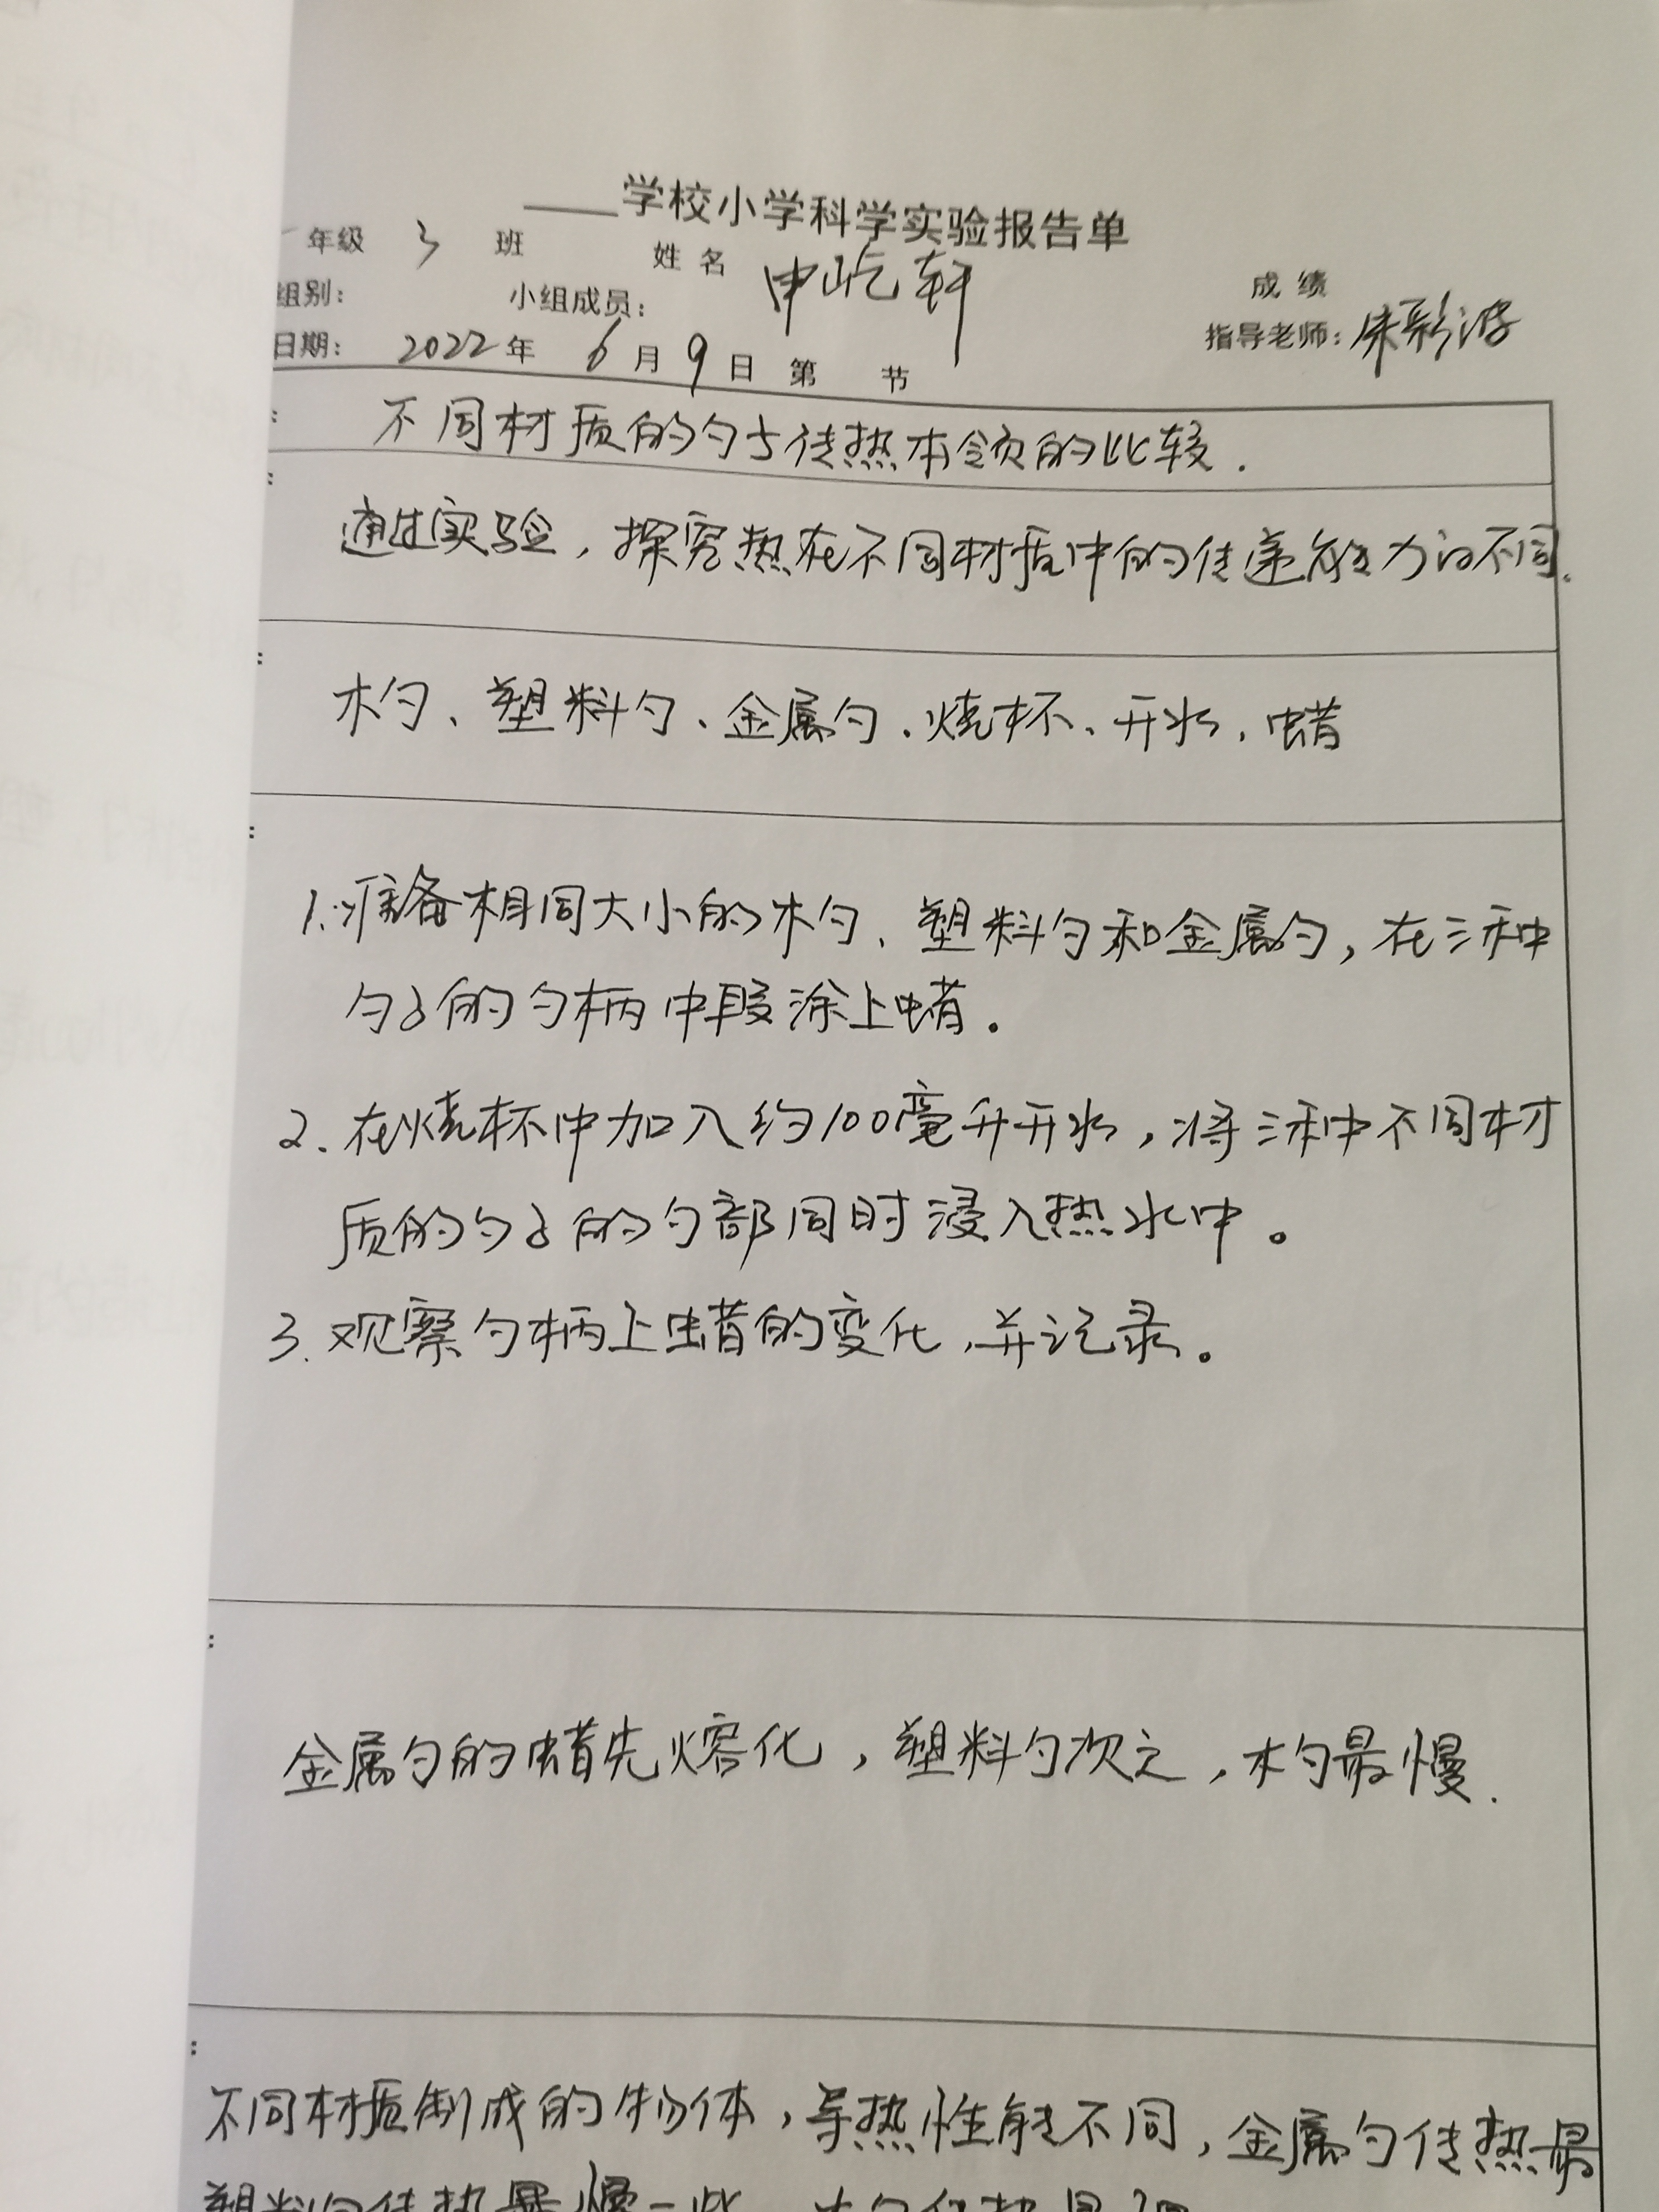 学校小学科学实验报告单
年级 3 班 姓名 申屹轩 成绩
组别: 小组成员: 指导老师:
日期: 2022年 6月9日 第 节
不同材质的勺子传热本领的比较.
通过实验,探究热在不同材质中的传递能力的不同.
木勺、塑料勺、金属勺、烧杯、开水、蜡
1.准备相同大小的木勺、塑料勺和金属勺,在三种
勺子的勺柄中段涂上蜡。
2.在烧杯中加入约100毫升开水,将三种不同材
质的勺子的勺部同时浸入热水中。
3.观察勺柄上蜡的变化,并记录。
金属勺的蜡先熔化,塑料勺次之,木勺最慢.
不同材质制成的物体,导热性能不同,金属勺传热最
塑料勺传热最慢一些